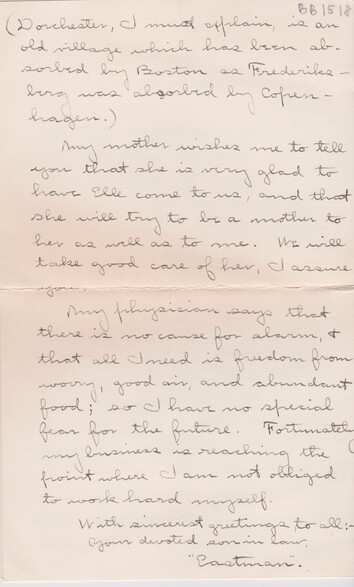 BB1518
(Dorchester, I must explain, is an
old village which has been ab-
sorbed by Boston as Frederiks-
berg was absorbed by Copen-
hagen.)
My mother wishes me to tell
you that she is very glad to
have Elle come to us, and that
she will try to be a mother to
her as well as to me. We will
take good care of her, I assure
you.
My physician says that
there is no cause for alarm, &
that all I need is freedom from
worry, good air, and abundant
food; so I have no special
fear for the future. Fortunately
my business is reaching the
point where I am not obliged
to work hard myself.
With sincerest greetings to all:-
Your devoted son in law,
"Eastman".